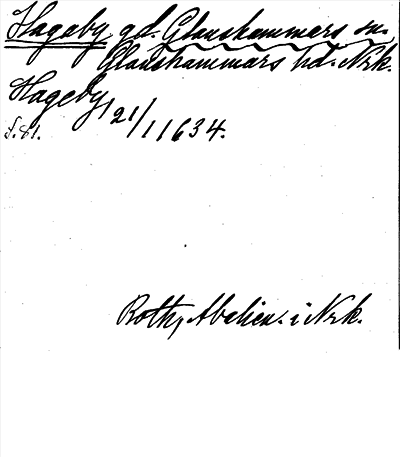 Hageby gd. Glanshammars sn.
Glanshammars hd. Nrk.
Hageby 21/1 1634.
S. 81.
Roth, Abelien. i Nrk.